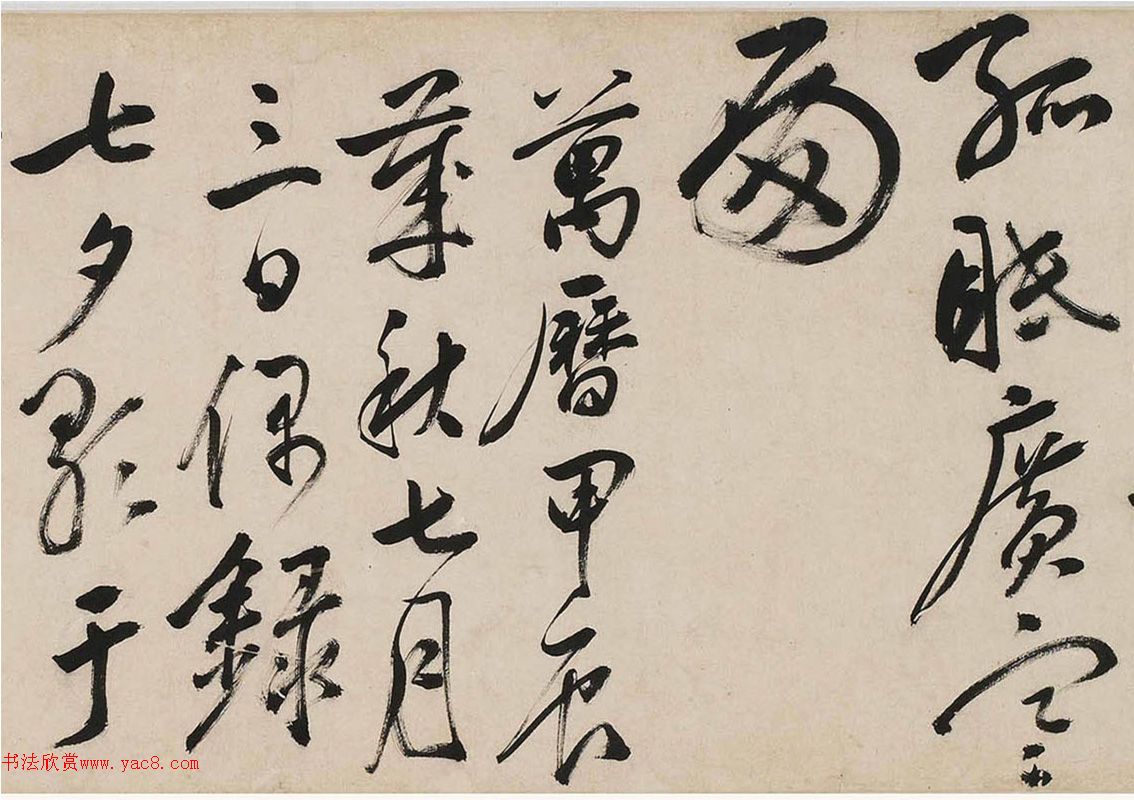 孤眠廣寒
殿
萬曆甲辰
歲秋七月
三日偶錄
七夕歌于
书法欣赏www.yac8.com